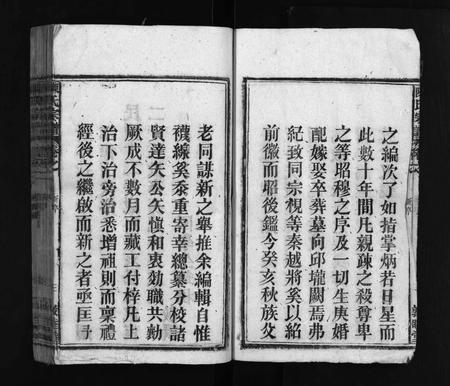 之編次了如指掌炳若日星而
此數十年間凡親疎之殺尊卑
之等昭穆之序及一切生庚婚
配嫁娶卒葬墓向邱壠闕焉弗
紀致同宗視等秦越將奚以紹
前徽而昭後鑑今癸亥秋族父
老同謀新之舉推余編輯自惟
襪線奚忝重寄幸總纂分校諸
賢達矢公矢愼和衷効職共勷
厥成不數月而藏工付梓凡上
治下治旁治悉增祖則而稟禮
經後之繼啟而新之者亟匡予